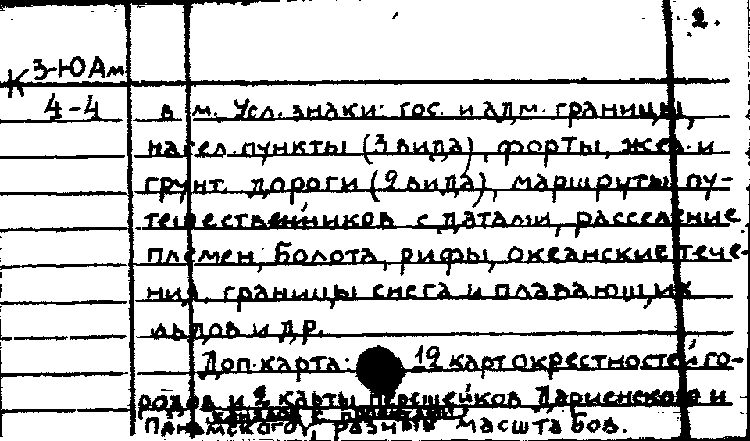 2.
К 3-ЮАм
4-4
в м. Усл. знаки: гос. и адм. границы,
насел. пункты (3 вида), форты, жел. и
грунт. дороги (2 вида), маршруты пу-
тешественников с датами, расселение
племен, болота, рифы, океанские тече-
ния, границы снега и плавающих
льдов и др.
Доп. карта: 12 карт окрестностей го-
родов и 2 карты перешейков Дариенского и
каналов с проектами,
Панамского, разных масштабов.